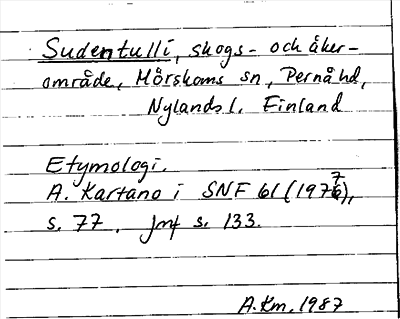 Sudentulli, skogs- och åker-
område, Mörskoms sn, Pernå hd,
Nylands l. Finland
Etymologi.
A. Kartano i SNF 61 (1977),
s. 77. Jmf s. 133.
A.Km. 1987